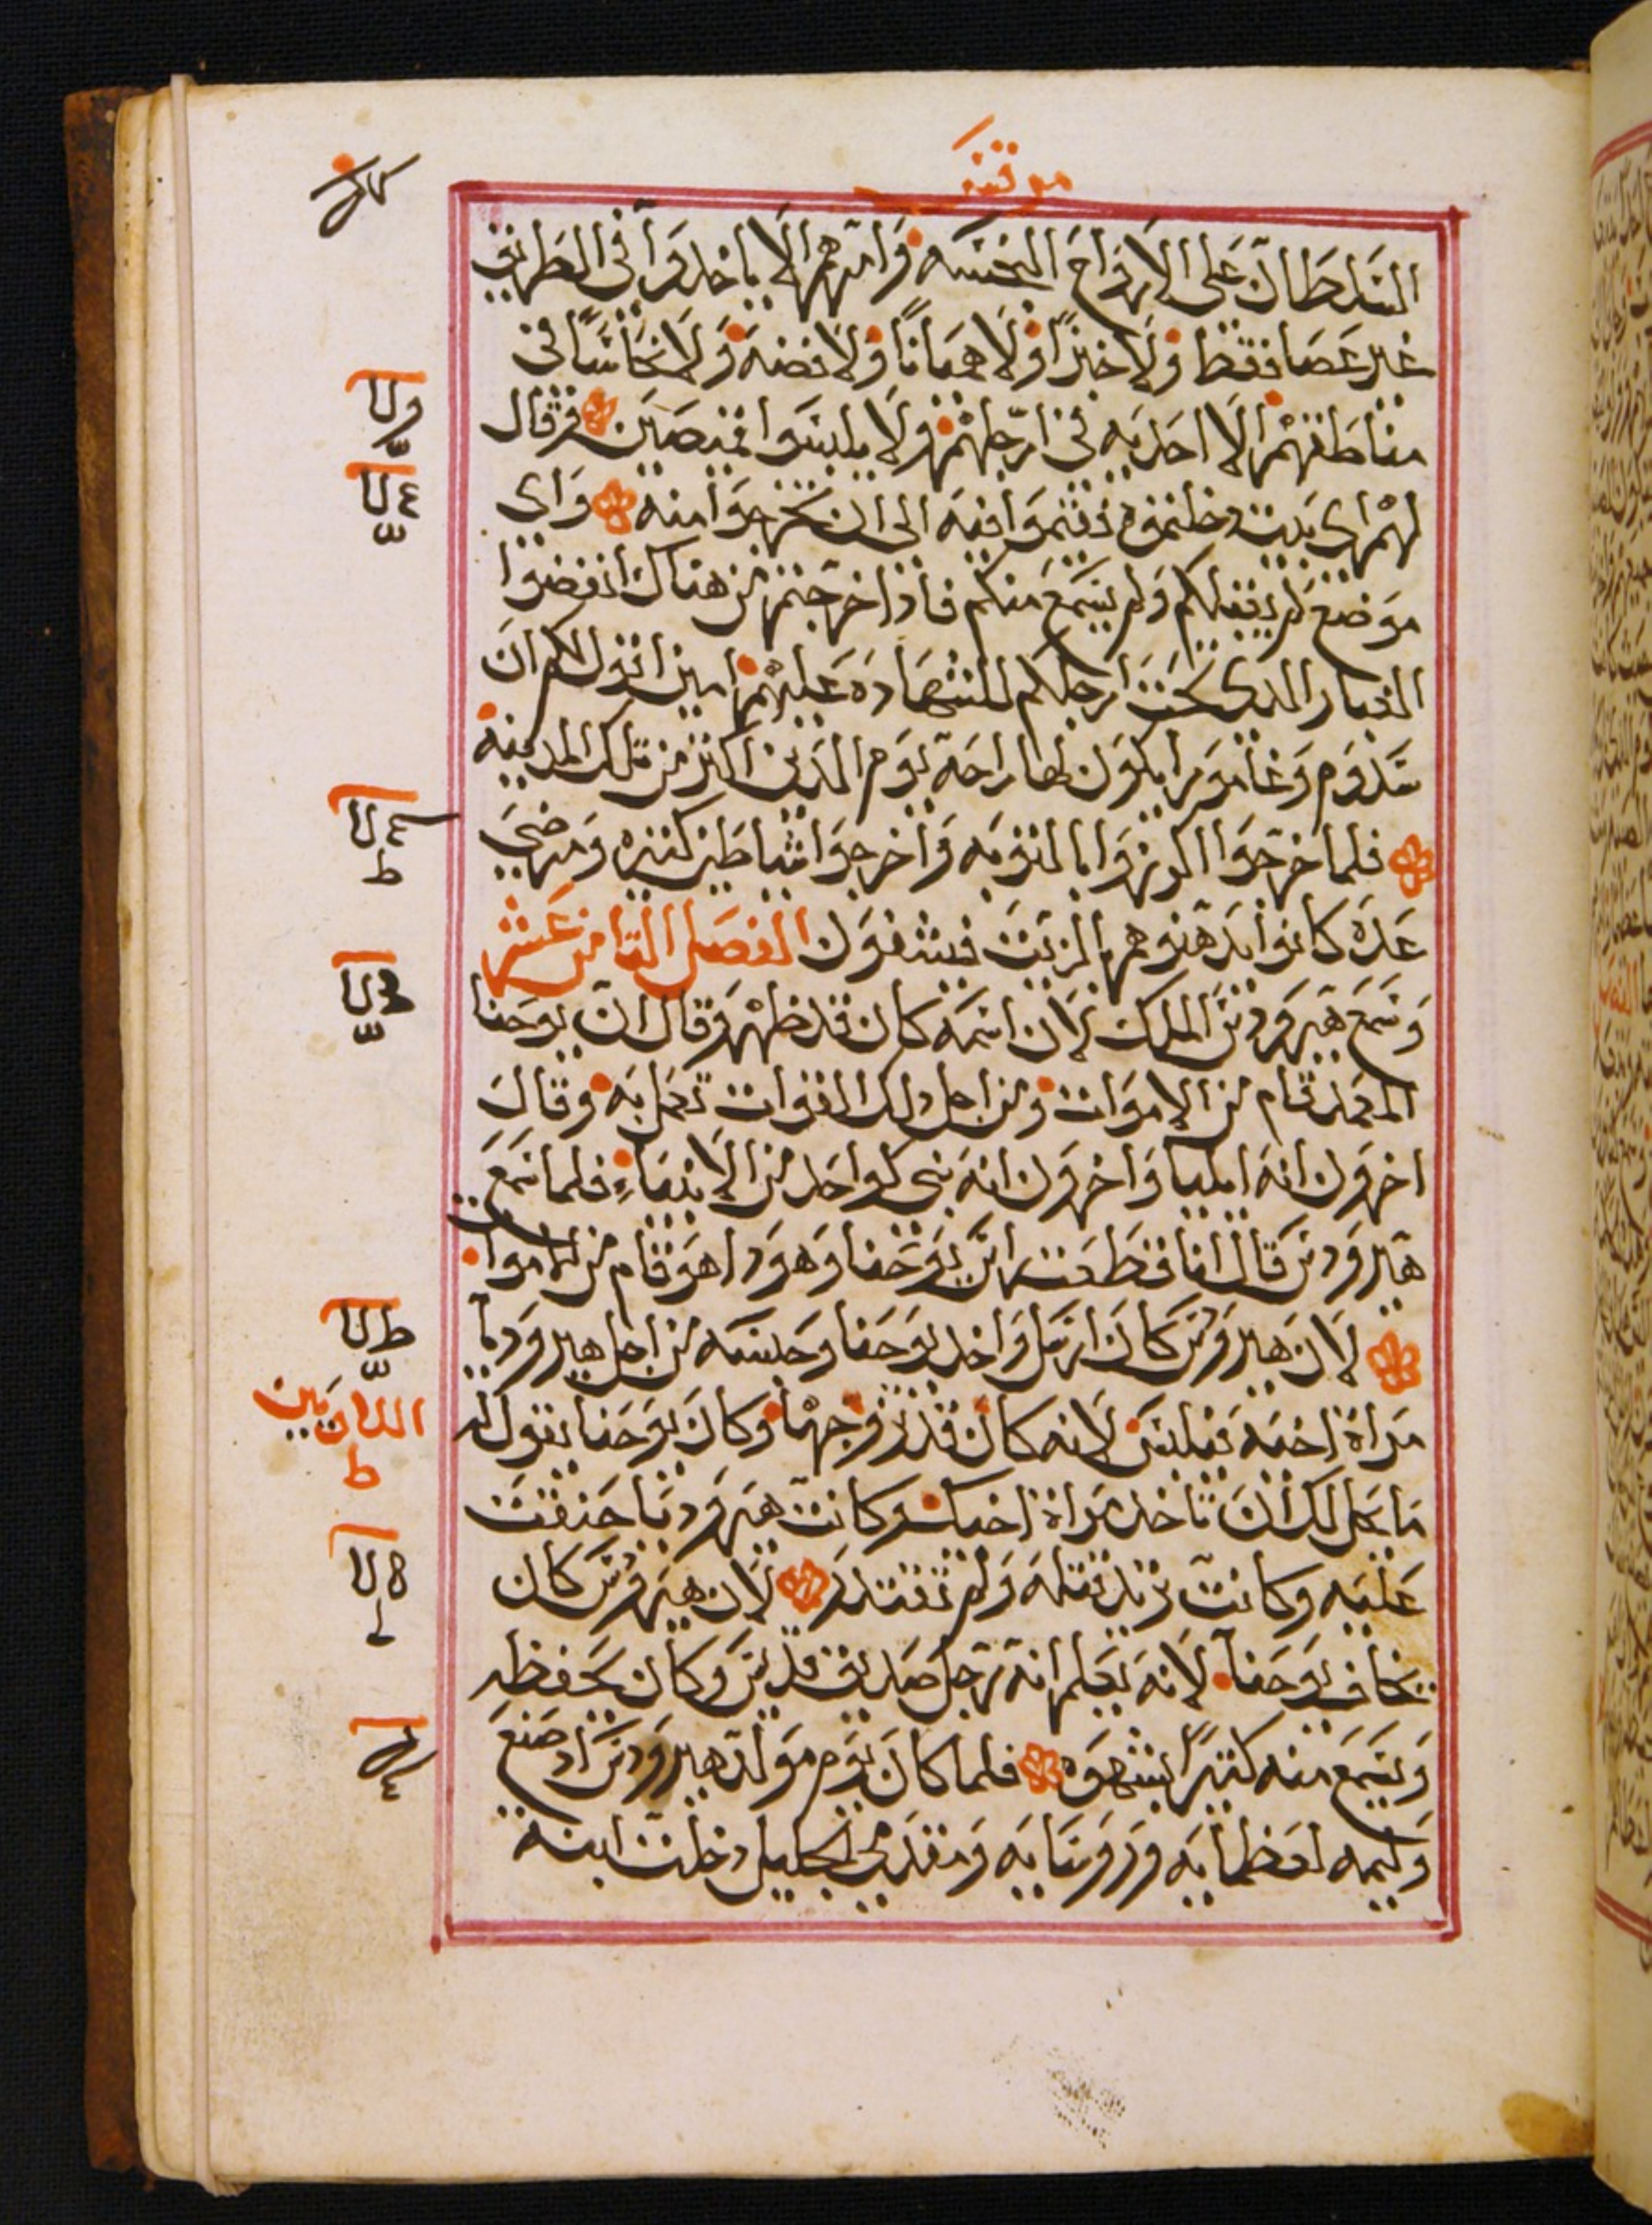 مرقس
السلطان على الارواح النجسه وامرهم الا ياخدوا فى الطريق
غير عصا فقط ولا خبزا ولا هميانا ولا فضه ولا نحاسا فى
مناطقهم الا احديه فى ارجلهم ولا يلبسوا قميصين وقال
لهم اى بيت دخلتموه فتموا فيه الى ان تخرجوا منه واى
موضع لم يقبلكم ولم يسمع منكم فادا خرجتم من هناك انفضوا
الغبار الدى تحت ارجلكم للشهاده عليهم امين اقول لكم ان
سدوم وغامورا يكون لها راحه يوم الدين اكثر من تلك المدينه
فلما خرجوا اكرزوا بالتوبه واخرجوا شياطين كتيره ومرضى
عده كانوا يدهنوهم بالزيت فيشفون الفصل التامن عشر
وسمع هيرودس الملك لان اسمه كان قد ظهر وقال ان يوحنا
المعمد قام من الاموات ومن اجل دلك القوات تعمل به وقال
اخرون انه ايليا واخرون انه نبى كواحد من الانبياء فلما سمع
هيرودس قال انا قطعت راس يوحنا وهودا هو قام من الاموات
لان هيرودس كان ارسل واخد يوحنا وحبسه من اجل هيروديا
مراة اخيه فيلبس لانه كان قد تزوجها وكان يوحنا يقول له
ما يحل لك ان تاخد مراة اخيك وكانت هيروديا حنقت
عليه وكانت تريد تقتله ولم تقتدر لان هيرودس كان
يخاف يوحنا لانه يعلم انه رجل صديق قديس وكان يحفظه
ويسمع منه كتيرا بشهوه فلما كان يوم مولد هيرودس اد صنع
وليمه لعظمايه وروسايه ومقدمى الجليل دخلت ابنة